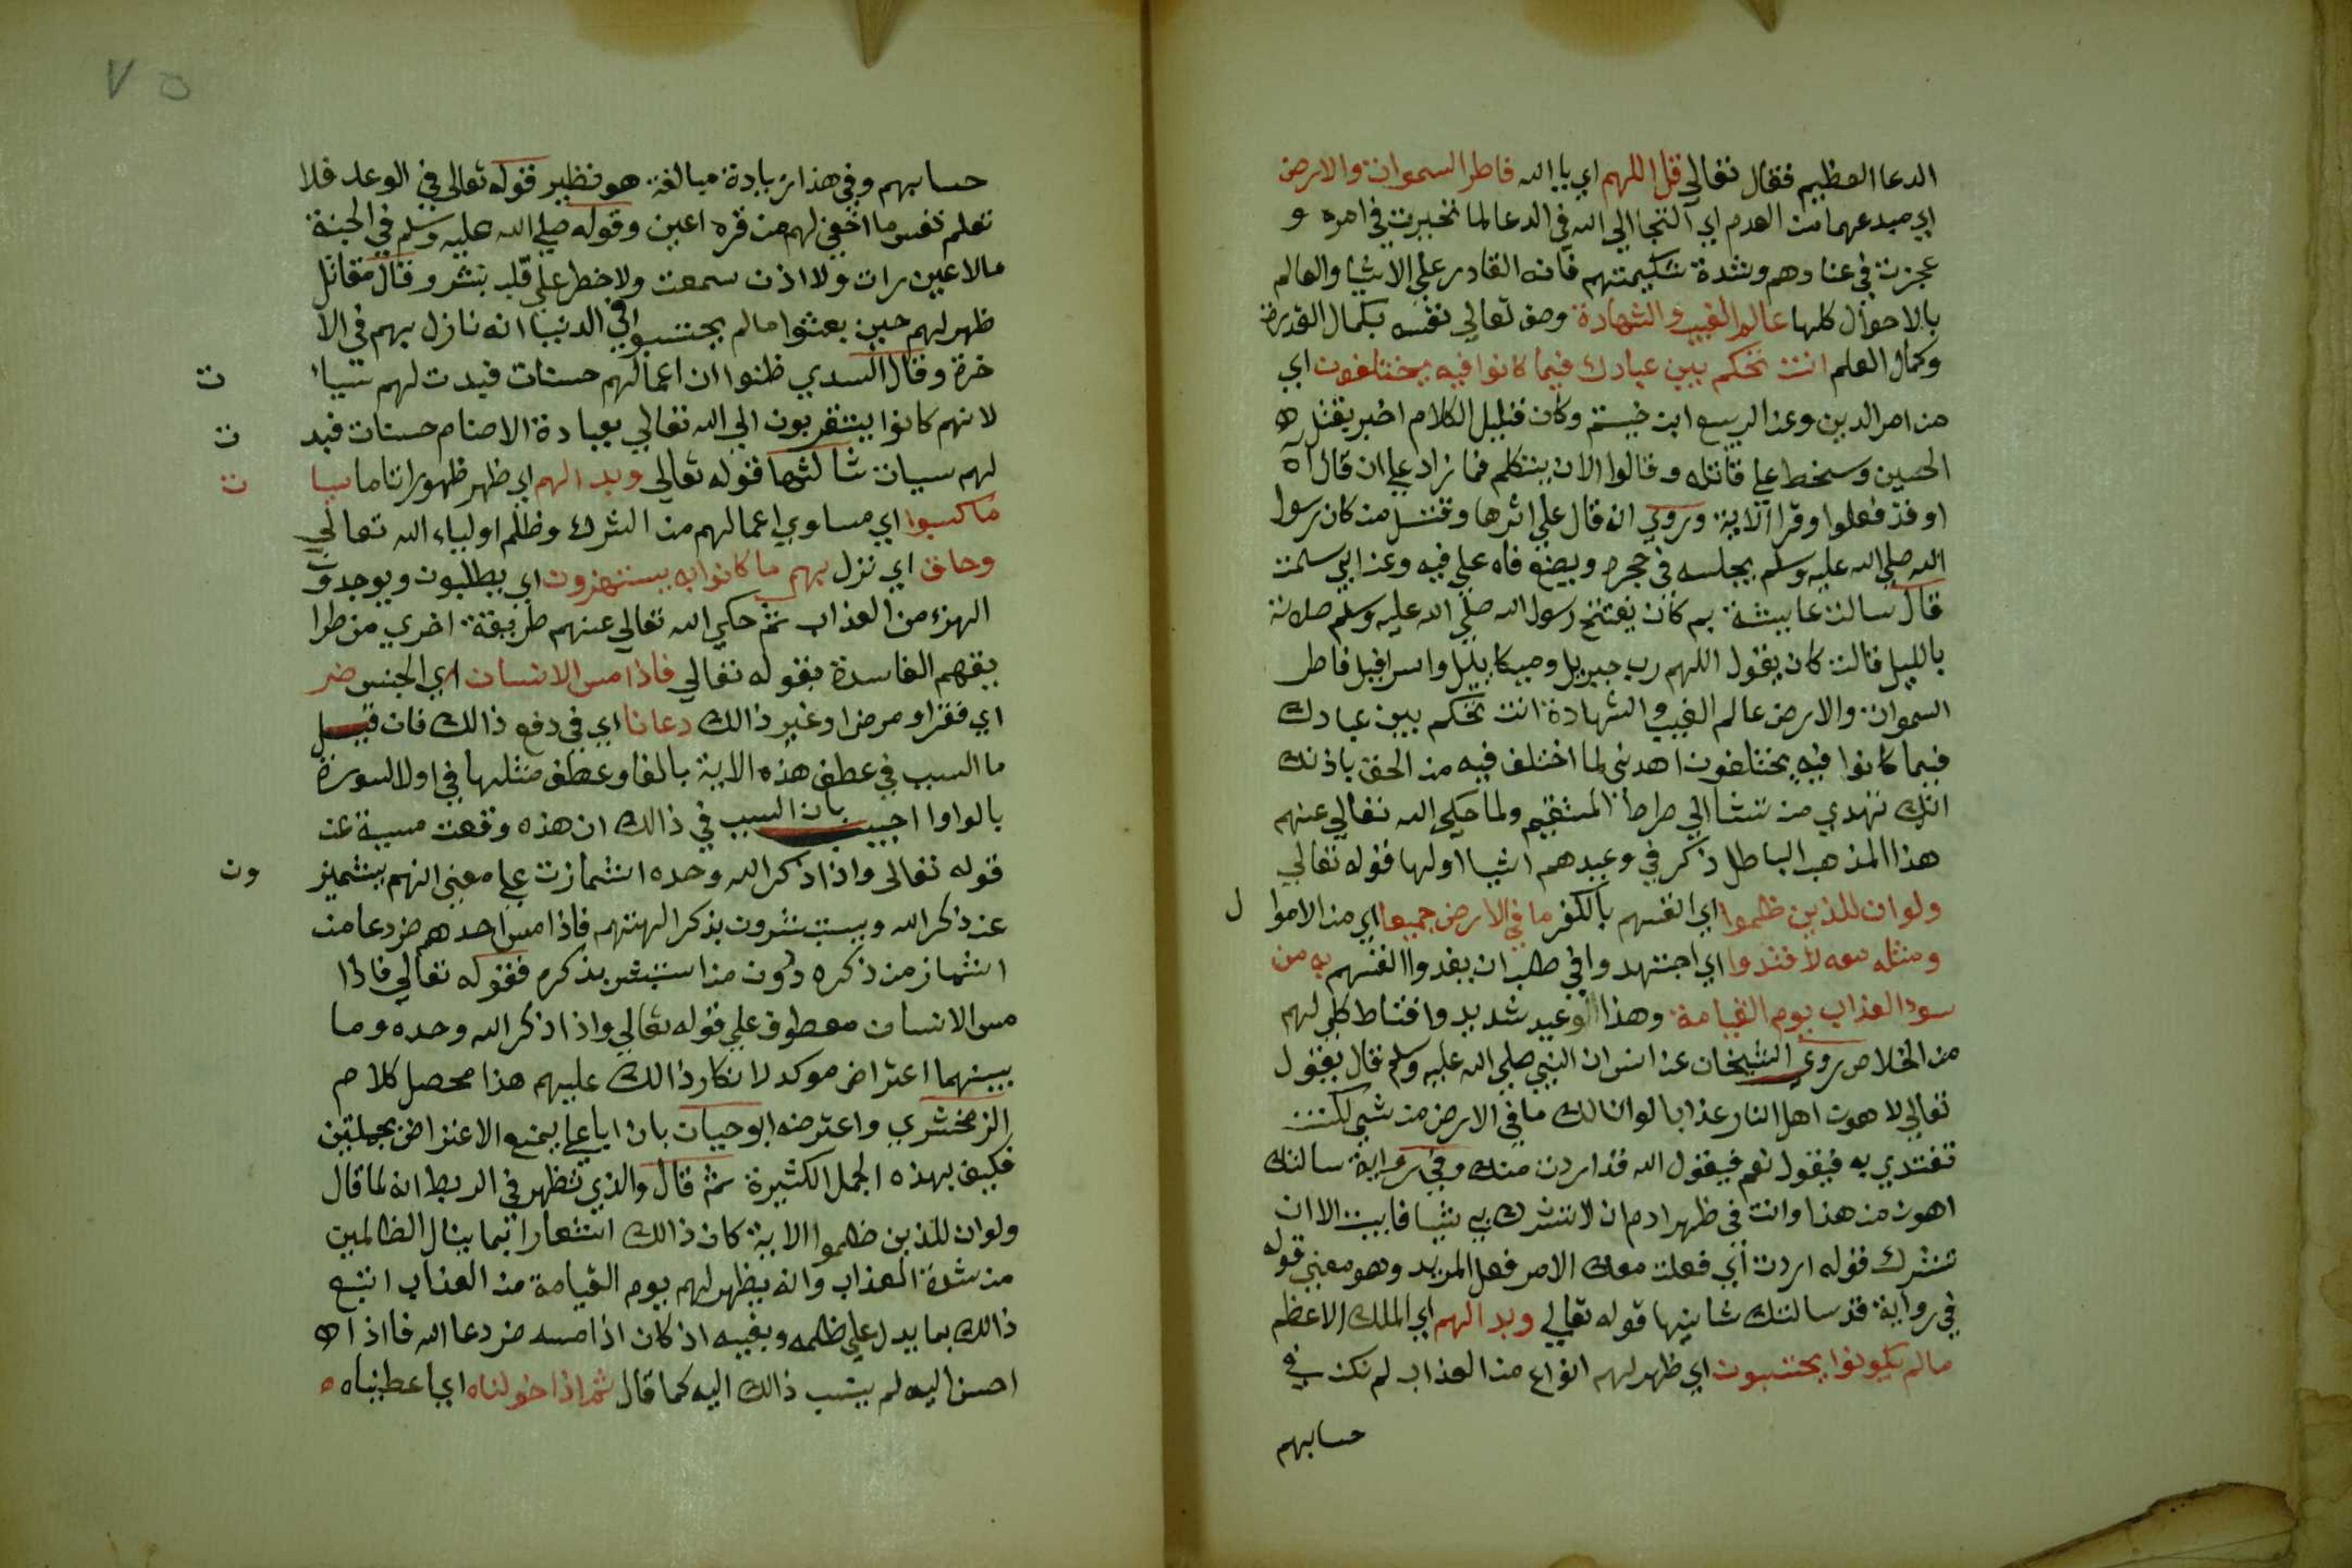 الدعا العظيم فقال تعالي قل اللهم اي يا الله فاطر السموات والارض
اي مبدعهما من العدم اي التجا الي الله في الدعا لما تحيرت في امره و
عجزت في عنادهم وشدة شكيمتهم فانه القادر علي الاشيا والعالم
بالاحوال كلها عالم الغيب والشهادة وصف تعالي نفسه بكمال القدرة
وكمال العلم انت تحكم بين عبادك فيما كانوا فيه يختلفون اي
من امر الدين وعن الربيع ابن خيثم وكان قليل الكلام اخبر بقتل
الحسين وسخط علي قاتله وقالوا الان يتكلم فما زاد علي ان قال آه
او قد فعلوا وقرا الاية وروي انه قال علي اثرها وقتل من كان رسول
الله صلي الله عليه وسلم يجلسه في حجره ويضع فاه علي فيه وعن ابي سلمة
قال سالت عايشة بم كان يفتتح رسول الله صلي الله عليه وسلم صلاته
بالليل قالت كان يقول اللهم رب جبريل وميكاييل واسرافيل فاطر
السموات والارض عالم الغيب والشهادة انت تحكم بين عبادك
فيما كانوا فيه يختلفون اهدني لما اختلف فيه من الحق باذنك
انك تهدي من تشا الي صراط المستقيم ولما حكي الله تعالي عنهم
هذا المذهب الباطل ذكر في وعيدهم اشيا اولها قوله تعالي
ولو ان للذين ظلموا اي انفسهم بالكفر ما في الارض جميعا اي من الاموا ل
ومثله معه لافتدوا اي اجتهدوا في طلب ان يفدوا انفسهم به من
سوء العذاب يوم القيامة وهذا الوعيد شديد واقناط كلي لهم
من الخلاص روي الشيخان عن انس ان النبي صلي الله عليه وسلم قال يقول
تعالي لاهون اهل النار عذابا لو ان لك ما في الارض من شي لكنت
تفتدي به فيقول نعم فيقول الله قد اردت منك وفي رواية سالتك
اهون من هذا وانت في ظهر ادم ان لا تشرك بي شيا فابيت الا ان
تشرك قوله اردت اي فعلت معك الامر فعل المريد وهو معني قوله
في رواية قد سالتك ثانيها قوله تعالي وبدا لهم اي الملك الاعظم
مالم يكونوا يحتسبون اي ظهر لهم انواع من العذاب لم تكن في
حسابهم
٧٥
حسابهم وفي هذا زيادة مبالغة هو نظير قوله تعالي في الوعد فلا
تعلم نفس ما اخفي لهم من قرة اعين وقوله صلي الله عليه وسلم في الجنة
مالا عين رات ولا اذن سمعت ولا خطر علي قلب بشر وقال مقاتل
ظهر لهم حين بعثوا مالم يحتسبوا في الدنيا انه نازل بهم في الا
خرة وقال السدي ظنوا ان اعمالهم حسنات فبدت لهم سييا ت
لانهم كانوا يتقربون الي الله تعالي بعبادة الاصنام حسنات فبد ت
لهم سيات ثالثها قوله تعالي وبدا لهم اي ظهر ظهورا تاما سيا ت
ما كسبوا اي مساوي اعمالهم من الشرك وظلم اولياء الله تعالي
وحاق اي نزل بهم ما كانوا به يستهزون اي يطلبون ويوجدون
الهزء من العذاب ثم حكي الله تعالي عنهم طريقة اخري من طرا
يقهم الفاسدة بقوله تعالي فاذا مس الانسان اي الجنس ضر
اي فقرا و مرضا وغير ذالك دعانا اي في دفع ذالك فان قيل
ما السبب في عطف هذه الاية بالفا وعطف مثلها في اول السورة
بالواو اجيب بان السبب في ذالك ان هذه وقعت مسببة عن
قوله تعالي واذا ذكر الله وحده اشمازت علي معني انهم يشميز ون
عن ذكر الله ويستبشرون بذكر الهتهم فاذا مس احدهم ضر دعا من
اشماز من ذكره دون من استبشر بذكره فقوله تعالي فاذا
مس الانسان معطوف علي قوله تعالي واذا ذكر الله وحده وما
بينهما اعتراض موكد لانكار ذالك عليهم هذا محصل كلام
الزمخشري واعترضه ابو حيان بان ابا علي يمنع الاعتراض بجملتين
فكيف بهذه الجمل الكثيرة ثم قال والذي يظهر في الربط انه لما قال
ولو ان للذين ظلموا الاية كان ذالك اشعارا بما ينال الظالمين
من شدة العذاب وانه يظهر لهم يوم القيامة من العذاب اتبع
ذالك بما يدل علي ظلمه وبغيه اذ كان اذا مسه ضر دعا الله فاذا
احسن اليه لم ينسب ذالك اليه كما قال ثم اذا خولناه اي اعطيناه